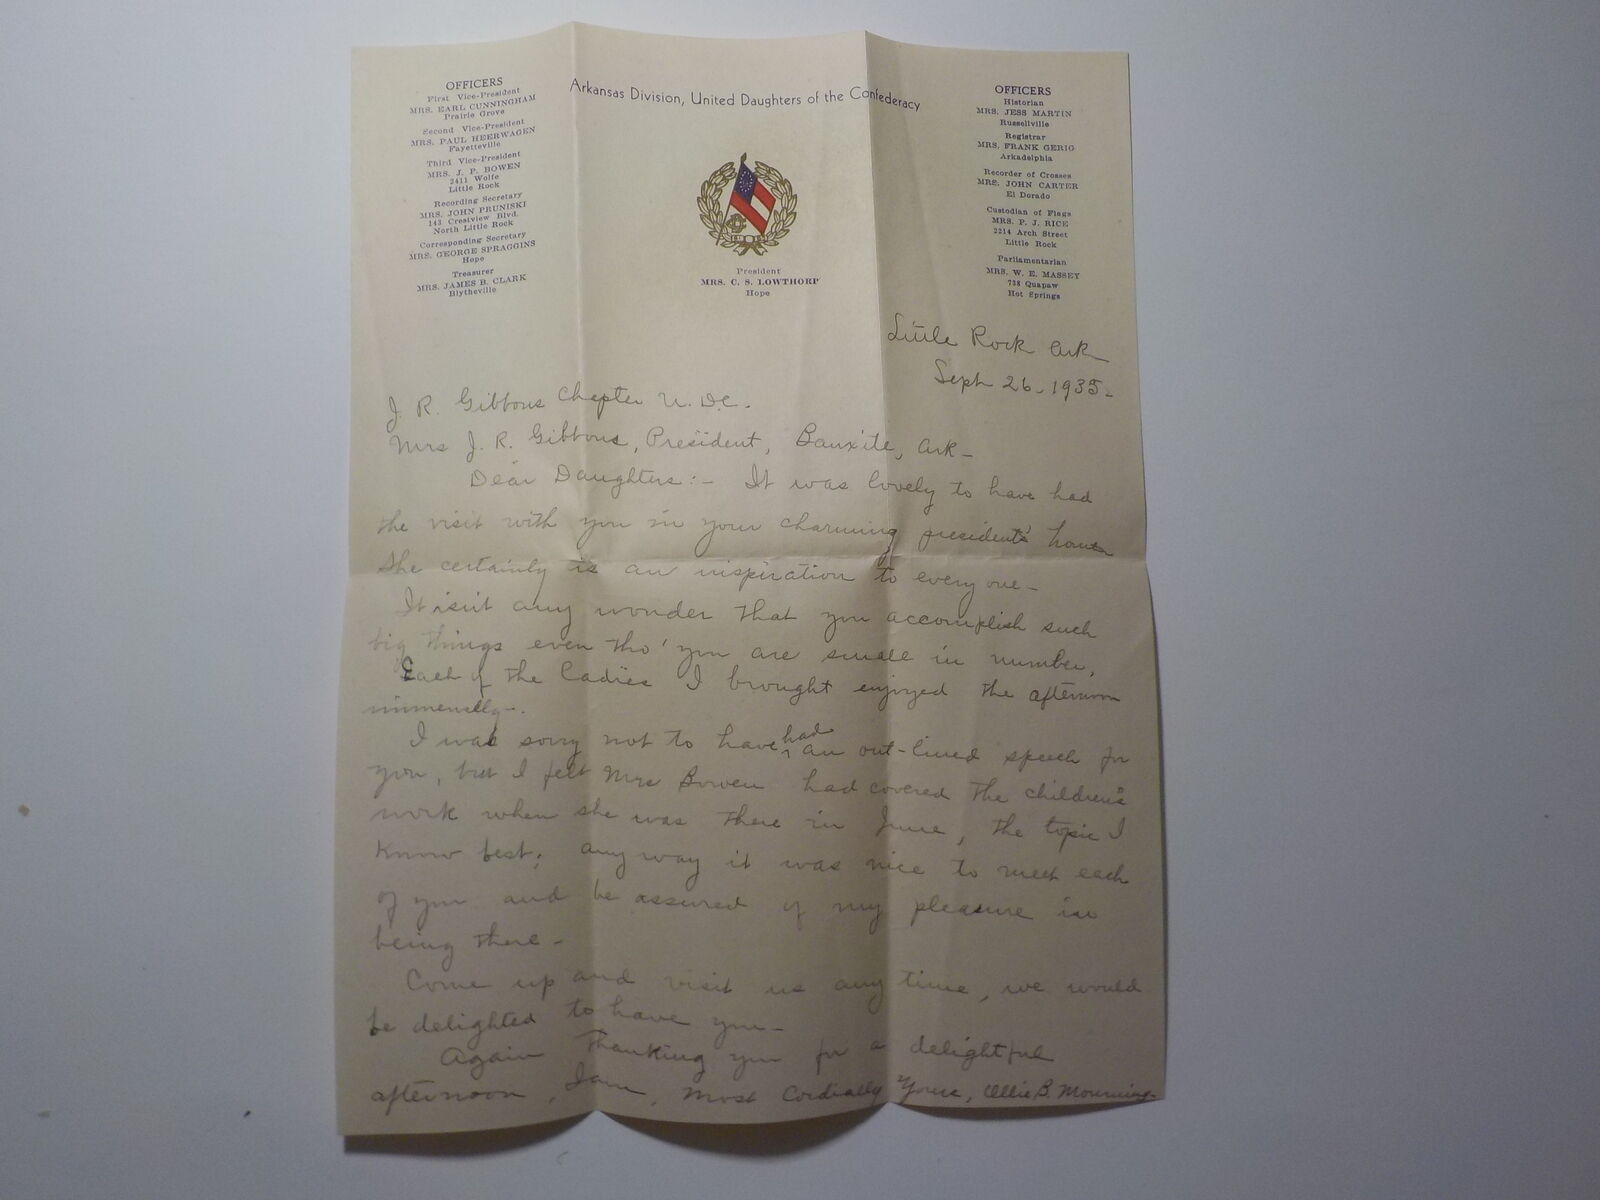 Arkansas Division, United Daughters of the Confederacy
OFFICERS
First Vice-President
MRS. EARL CUNNINGHAM
Prairie Grove
Second Vice-President
MRS. PAUL HEERWAGEN
Fayetteville
Third Vice-President
MRS. J. P. BOWEN
2411 Wolfe
Little Rock
Recording Secretary
MRS. JOHN PRUNISKI
143 Crestview Blvd.
North Little Rock
Corresponding Secretary
MRS. GEORGE SPRAGGINS
Hope
Treasurer
MRS. JAMES B. CLARK
Blytheville
President
MRS. C. S. LOWTHORP
Hope
OFFICERS
Historian
MRS. JESS MARTIN
Russellville
Registrar
MRS. FRANK GERIG
Arkadelphia
Recorder of Crosses
MRS. JOHN CARTER
El Dorado
Custodian of Flags
MRS. P. J. RICE
2214 Arch Street
Little Rock
Parliamentarian
MRS. W. E. MASSEY
738 Quapaw
Hot Springs
Little Rock Ark
Sept 26-1935-
J. R. Gibbons Chapter U.D.C.
Mrs J. R. Gibbons, President, Bauxite, Ark-
Dear Daughters:- It was lovely to have had
the visit with you in your charming presidents' home
She certainly is an inspiration to every one-
It isn't any wonder that you accomplish such
big things even tho' you are small in number.
Each of the Ladies I brought enjoyed the afternoon
immensely-.
I was sorry not to have had an out-lined speech for
you, but I felt Mrs Bowen had covered the children's
work when she was there in June, the topic I
know best; any way it was nice to meet each
of you and be assured of my pleasure in
being there-
Come up and visit us any time, we would
be delighted to have you-
Again thanking you for a delightful
afternoon, I am, most Cordially Yours, Ollie B. Mourning-